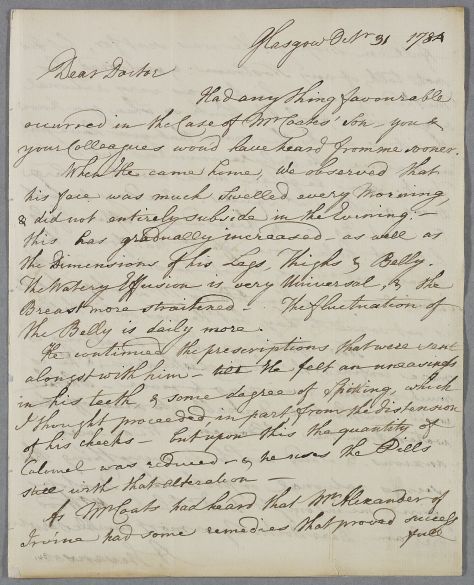 Glasgow Octr 31 1784
Dear Doctor
Had any thing favourable
occurred in the Case of Mr Coats' Son, you &
your Colleagues woud have heard from me sooner.
When He came home, we observed that
his face was much Swelled every Morning,
& did not entirely subside in the Evening. –
this has gradually increased – as well as
the Dimensions of his Legs, Thighs & Belly.
The Watery Effusion is very Universal, & the
Breast more straitened – The fluctuation of
the Belly is daily more.
He continued the prescriptions that were sent
alongst with him – till He felt an uneasiness
in his teeth, & some degree of Spitting, which
I thought proceeded in part from the distension
of his cheeks – but upon this the quantity of
Calomel was reduced – & he uses the Pills
still with that alteration –
As Mr Coats had heard that Mr Alexander of
Irvine had some remedies that proved success
full